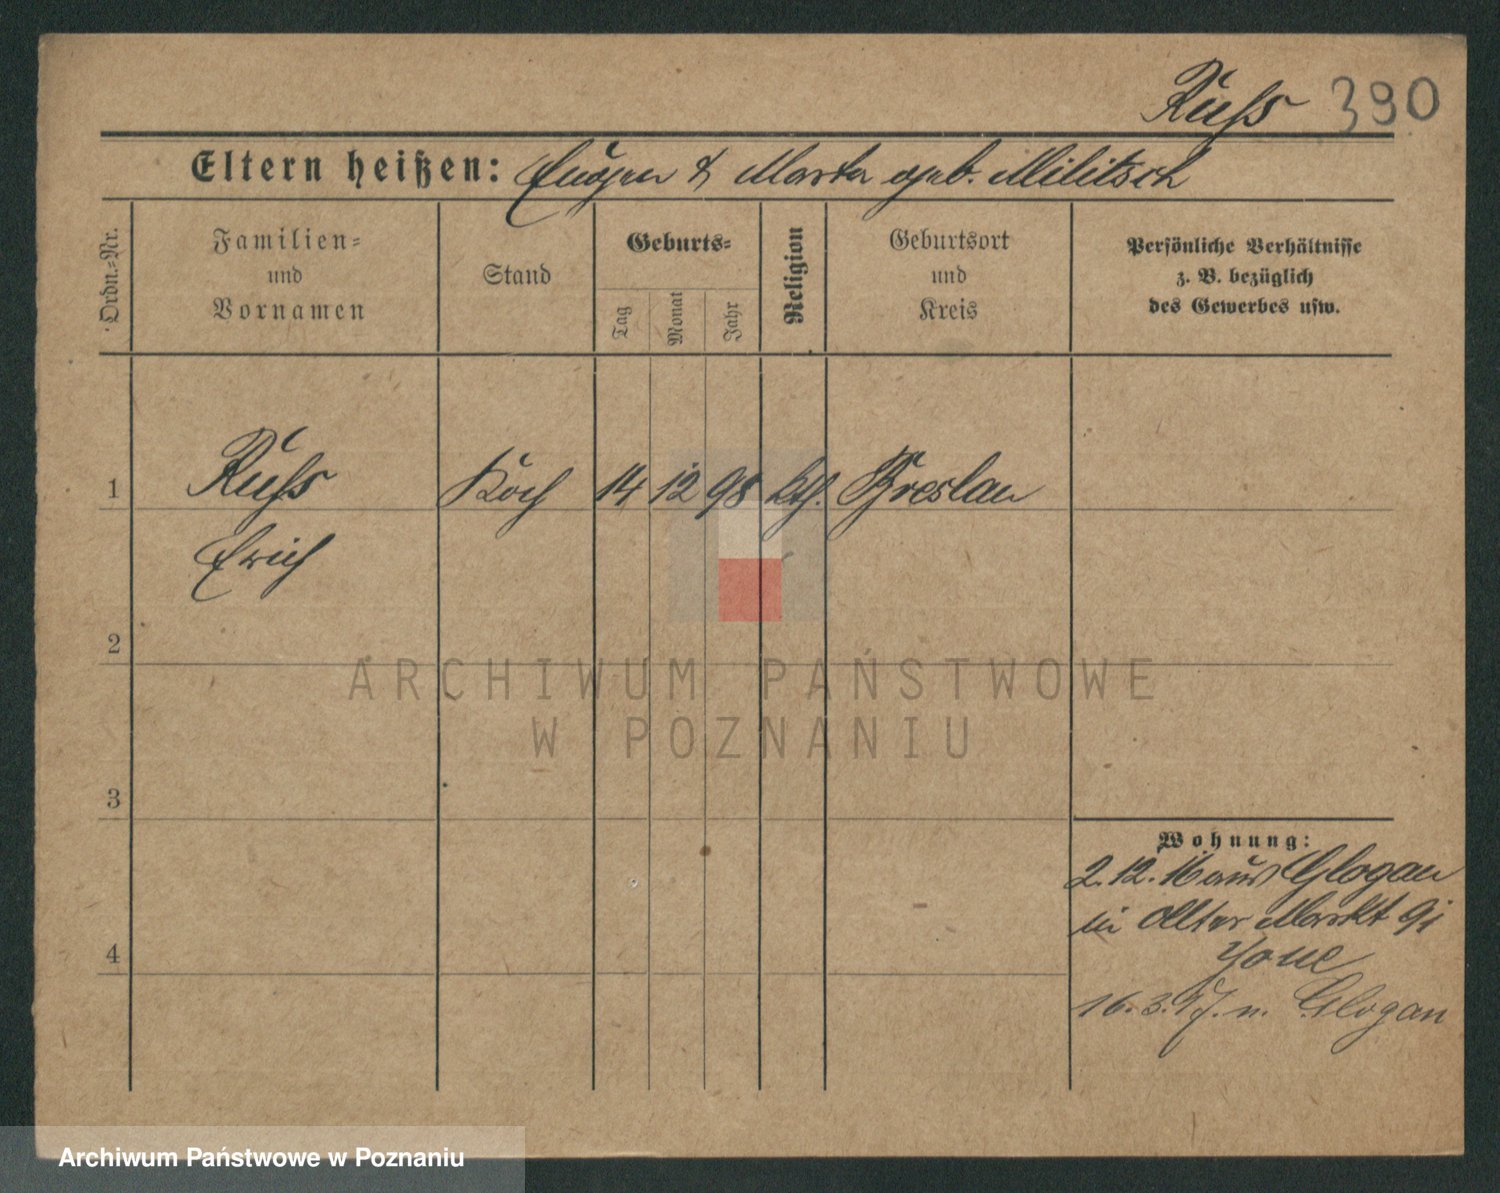 Ruß 390
Eltern heißen: Eugen & Marta geb. Militsch
Ordn.-Nr.
Familien-
und
Vornamen
Stand
Geburts-
Tag
Monat
Jahr
Religion
Geburtsort
und
Kreis
Persönliche Verhältnisse
z. B. bezüglich
des Gewerbes usw.
1 Ruß Koch 14 12 98 kth. Breslau
Erich
2
3
4
Wohnung:
2.12.16 aus Glogau
in Alter Markt 91
16.3.17. n. Glogau
ARCHIWUM PAŃSTWOWE
W POZNANIU
Archiwum Państwowe w Poznaniu